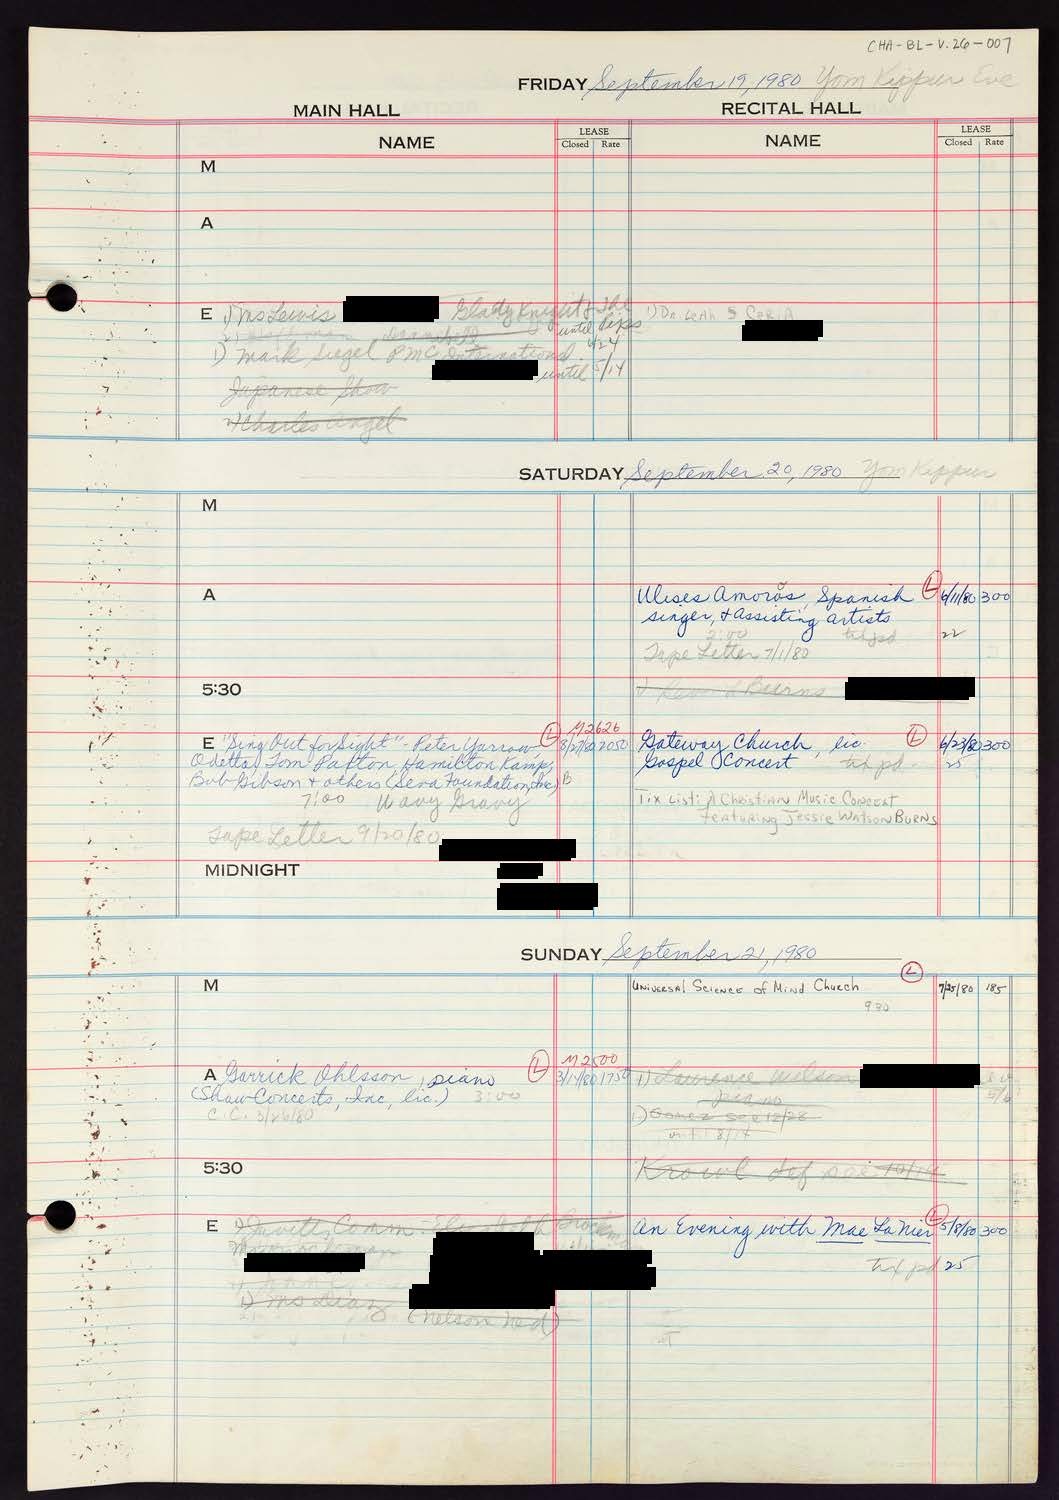 CHA-BL-V.26-007
FRIDAY September 19, 1980 Yom Kippur Eve
MAIN HALL
RECITAL HALL
NAME
LEASE
Closed Rate
NAME
LEASE
Closed Rate
M
A
E 1) Ms Lewis Glady Knight & The
until Pips
4/24
1) Dr. Leah
1) Mark Siegel PMC International
until 5/14
Japanese Show
Charles Angel
SATURDAY September 20, 1980 Yom Kippur
M
A
Ulises Amorós, Spanish L 6/11/80 300
singer, & assisting artists
2:00 tix pd 22
Tape Letter 7/11/80
5:30
Burns
M2626
E "Sing Out for Sight" - Peter Yarrow L 8/27/80 2050
Odetta, Tom Paxton Hamilton Kamp,
Bob Gibson & others (Seva Foundation, Inc) B
7:00 Wavy Gravy
Tape Letter 9/20/80
Gateway Church, lic. L 6/23/80 300
Gospel Concert tix pd. 25
Tix List: A Christian Music Concert
featuring Jessie Watson Burns
MIDNIGHT
SUNDAY September 21, 1980
M
L
Universal Science of Mind Church 7/25/80 185
930
M2500
A Garrick Ohlsson, piano L 3/17/80 1750
(Shaw Concerts, Inc, lic.) 3:00
C.C. 3/26/80
1) Laurence Wilson
piano
5/6
1) Gomez see 12/28
until 8/14
5:30
Krowl def see
E
1) Ms Diaz (Nelson Ned)
An Evening with Mae La Nier L 5/8/80 300
tix pd 25